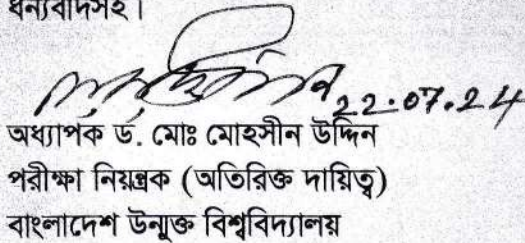 ধন্যবাদসহ।
22.07.24
অধ্যাপক ড. মোঃ মোহসীন উদ্দিন
পরীক্ষা নিয়ন্ত্রক (অতিরিক্ত দায়িত্ব)
বাংলাদেশ উন্মুক্ত বিশ্ববিদ্যালয়